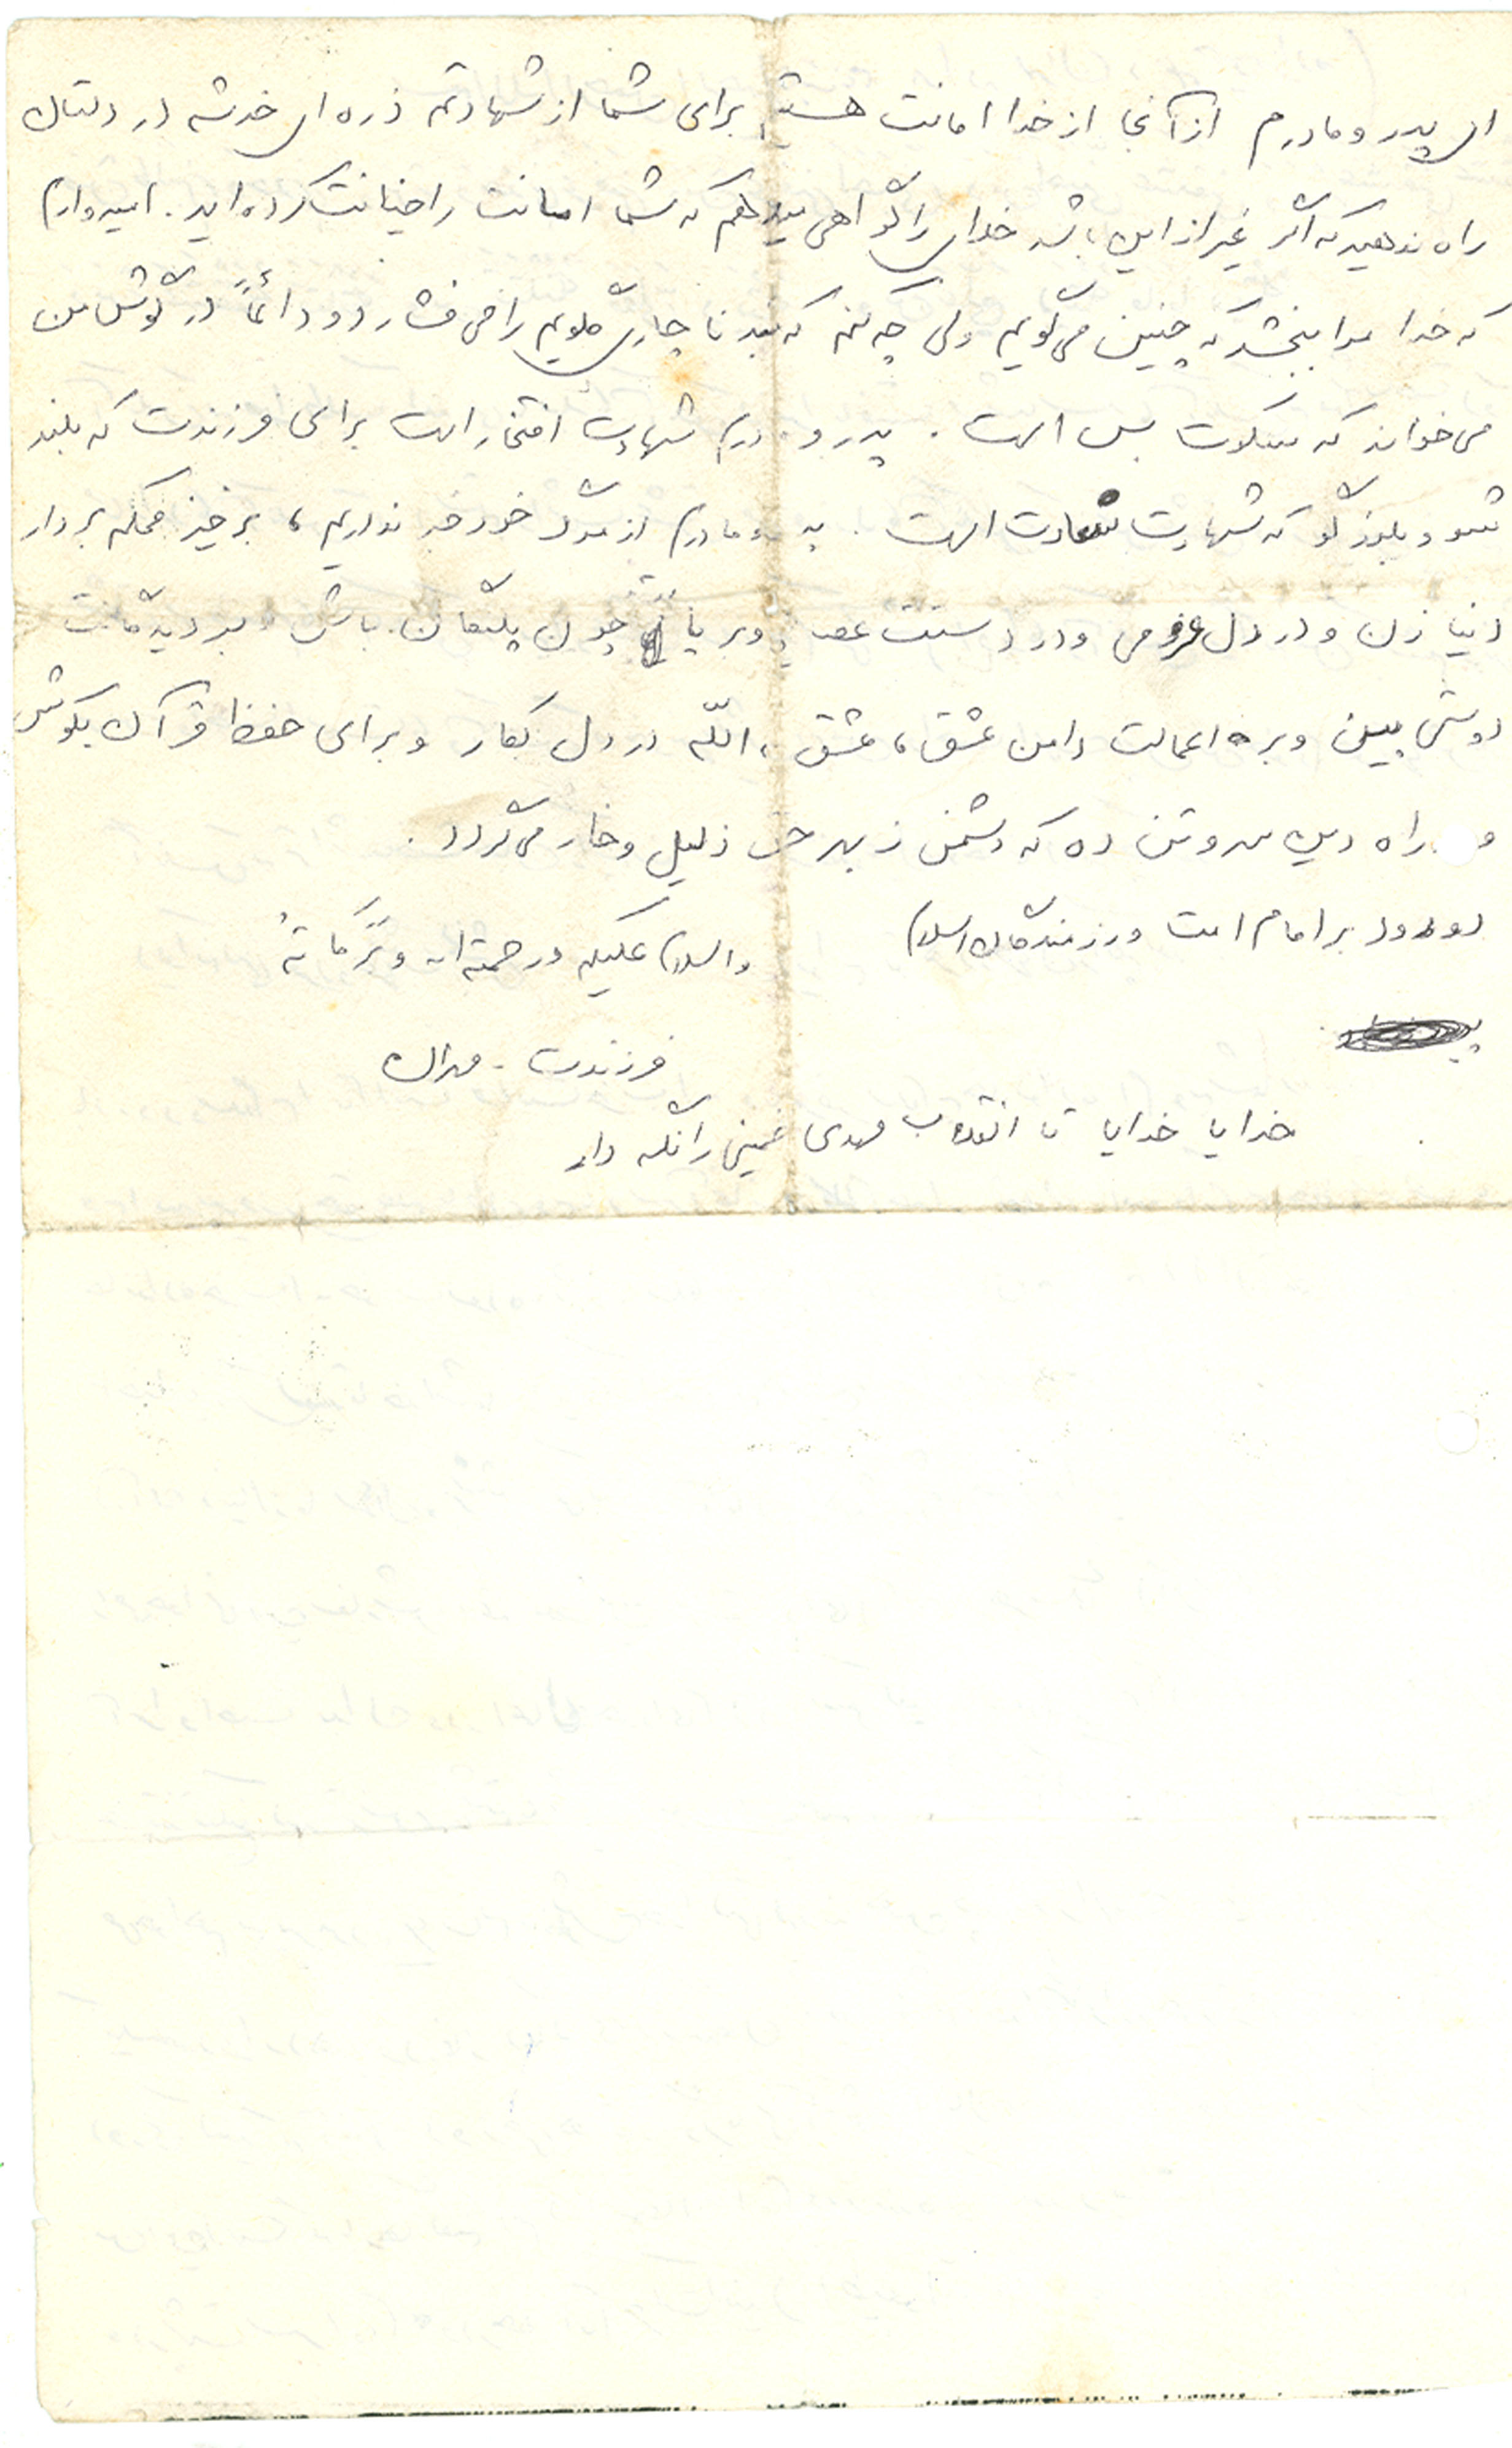 ای پدر و مادرم از آنجا از خدا امانت هستیم برای شما از شهادتم ذره ای خدشه در دلتان
راه ندهید که اگر غیر از این باشد خدای را گواهی میدهم که شما امانت را خیانت کرده اید. امیدوارم
که خدا مرا ببخشد که چنین می گویم ولی چه کنم که ناچاری گلویم را می فشارد و دائماً در گوش من
می خواند که سکوت بس است. پدر و مادرم شهادت افتخار است برای فرزندت که بلند
شو و بلند گو که شهادت سعادت است. پدر و مادرم از مرگ خود خبر نداریم، برخیز محکم بردار
دنیا زن و در دل عزمی و در دست عصا و بر پا چون پلنگان باش بر دیدگانت
دوستی ببین و بر اعمالت دامن عشق، عشق الله در دل بکار و برای حفظ قرآن بکوش
و راه دین سر و تن ده که دشمن ز بهر حق ذلیل و خار می گردد.
درود بر امام امت و رزمندگان اسلام
والسلام علیکم و رحمة الله و برکاته
فرزندت - مهران
خدایا خدایا تا انقلاب مهدی خمینی را نگه دار